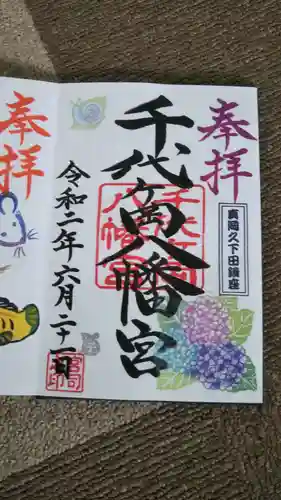 奉拝
真岡久下田鎮座
千代ヶ岡八幡宮
千代ヶ岡
八幡宮
令和二年六月二十一日
奉拝